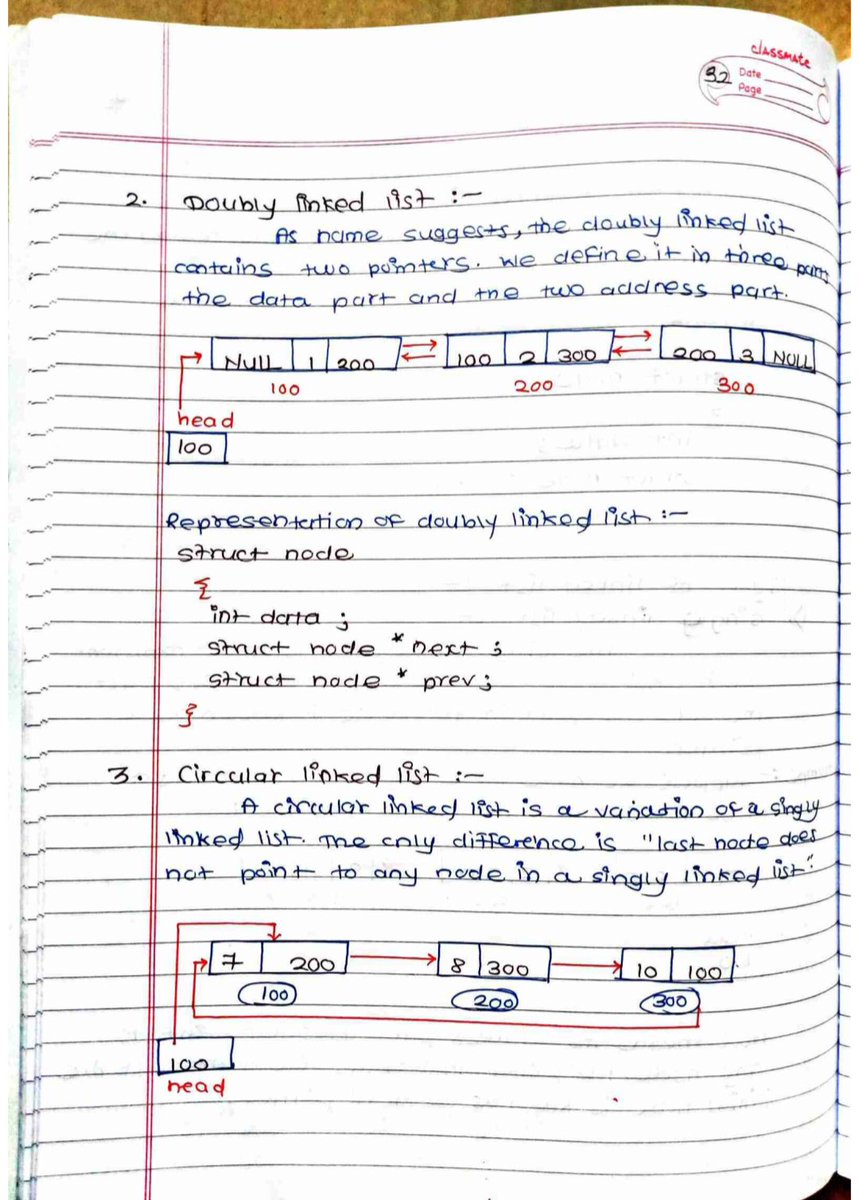 classmate
32
Date
Page
2. Doubly linked list :-
As name suggests, the doubly linked list
contains two pointers. We define it in three part,
the data part and the two address part.
NULL 1 200 100 2 300 200 3 NULL
100 200 300
head
100
Representation of doubly linked list :-
struct node
{
int data ;
struct node *next ;
struct node * prev ;
}
3. Circular linked list :-
A circular linked list is a variation of a singly
linked list. The only difference is "last node does
not point to any node in a singly linked list."
7 200 8 300 10 100
100 200 300
100
head